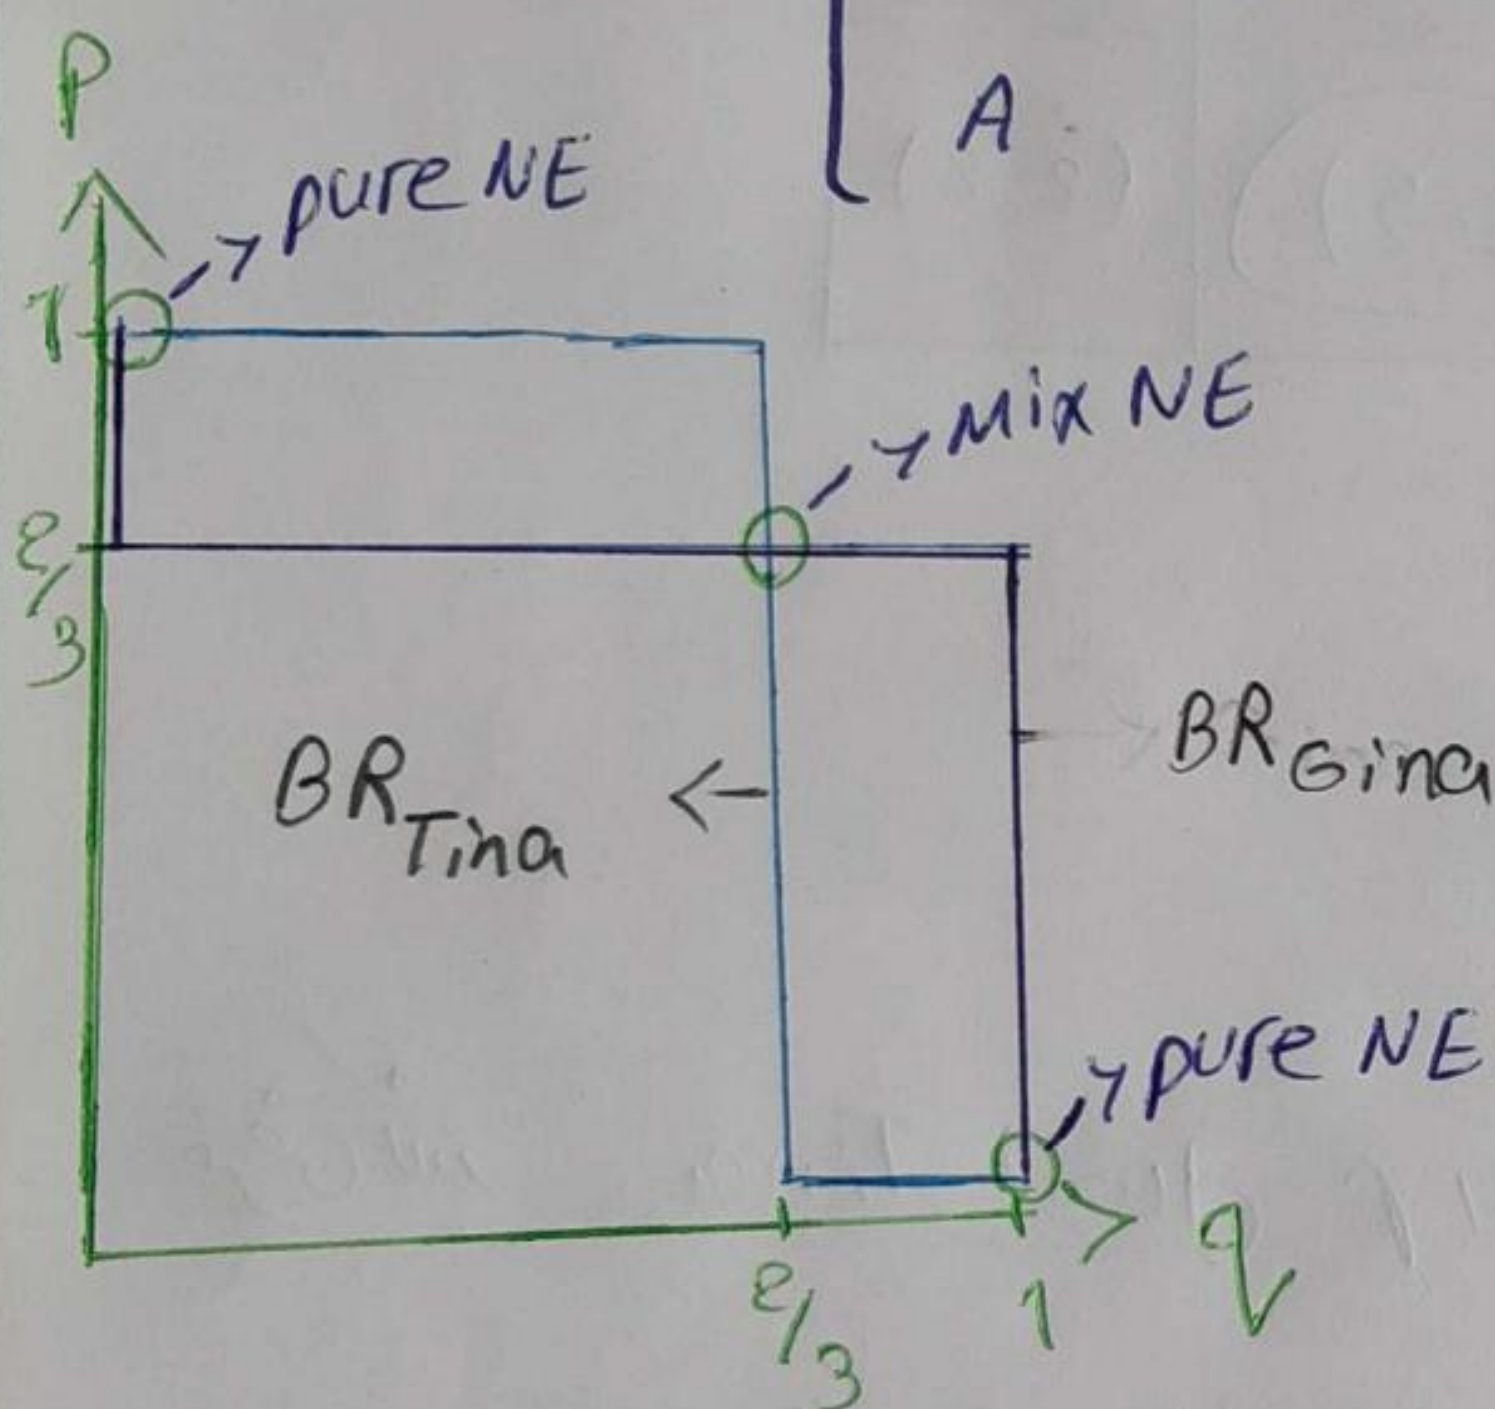 A
P
pure NE
1
Mix NE
2/3
BR Gina
BR Tina
pure NE
q
2/3
1